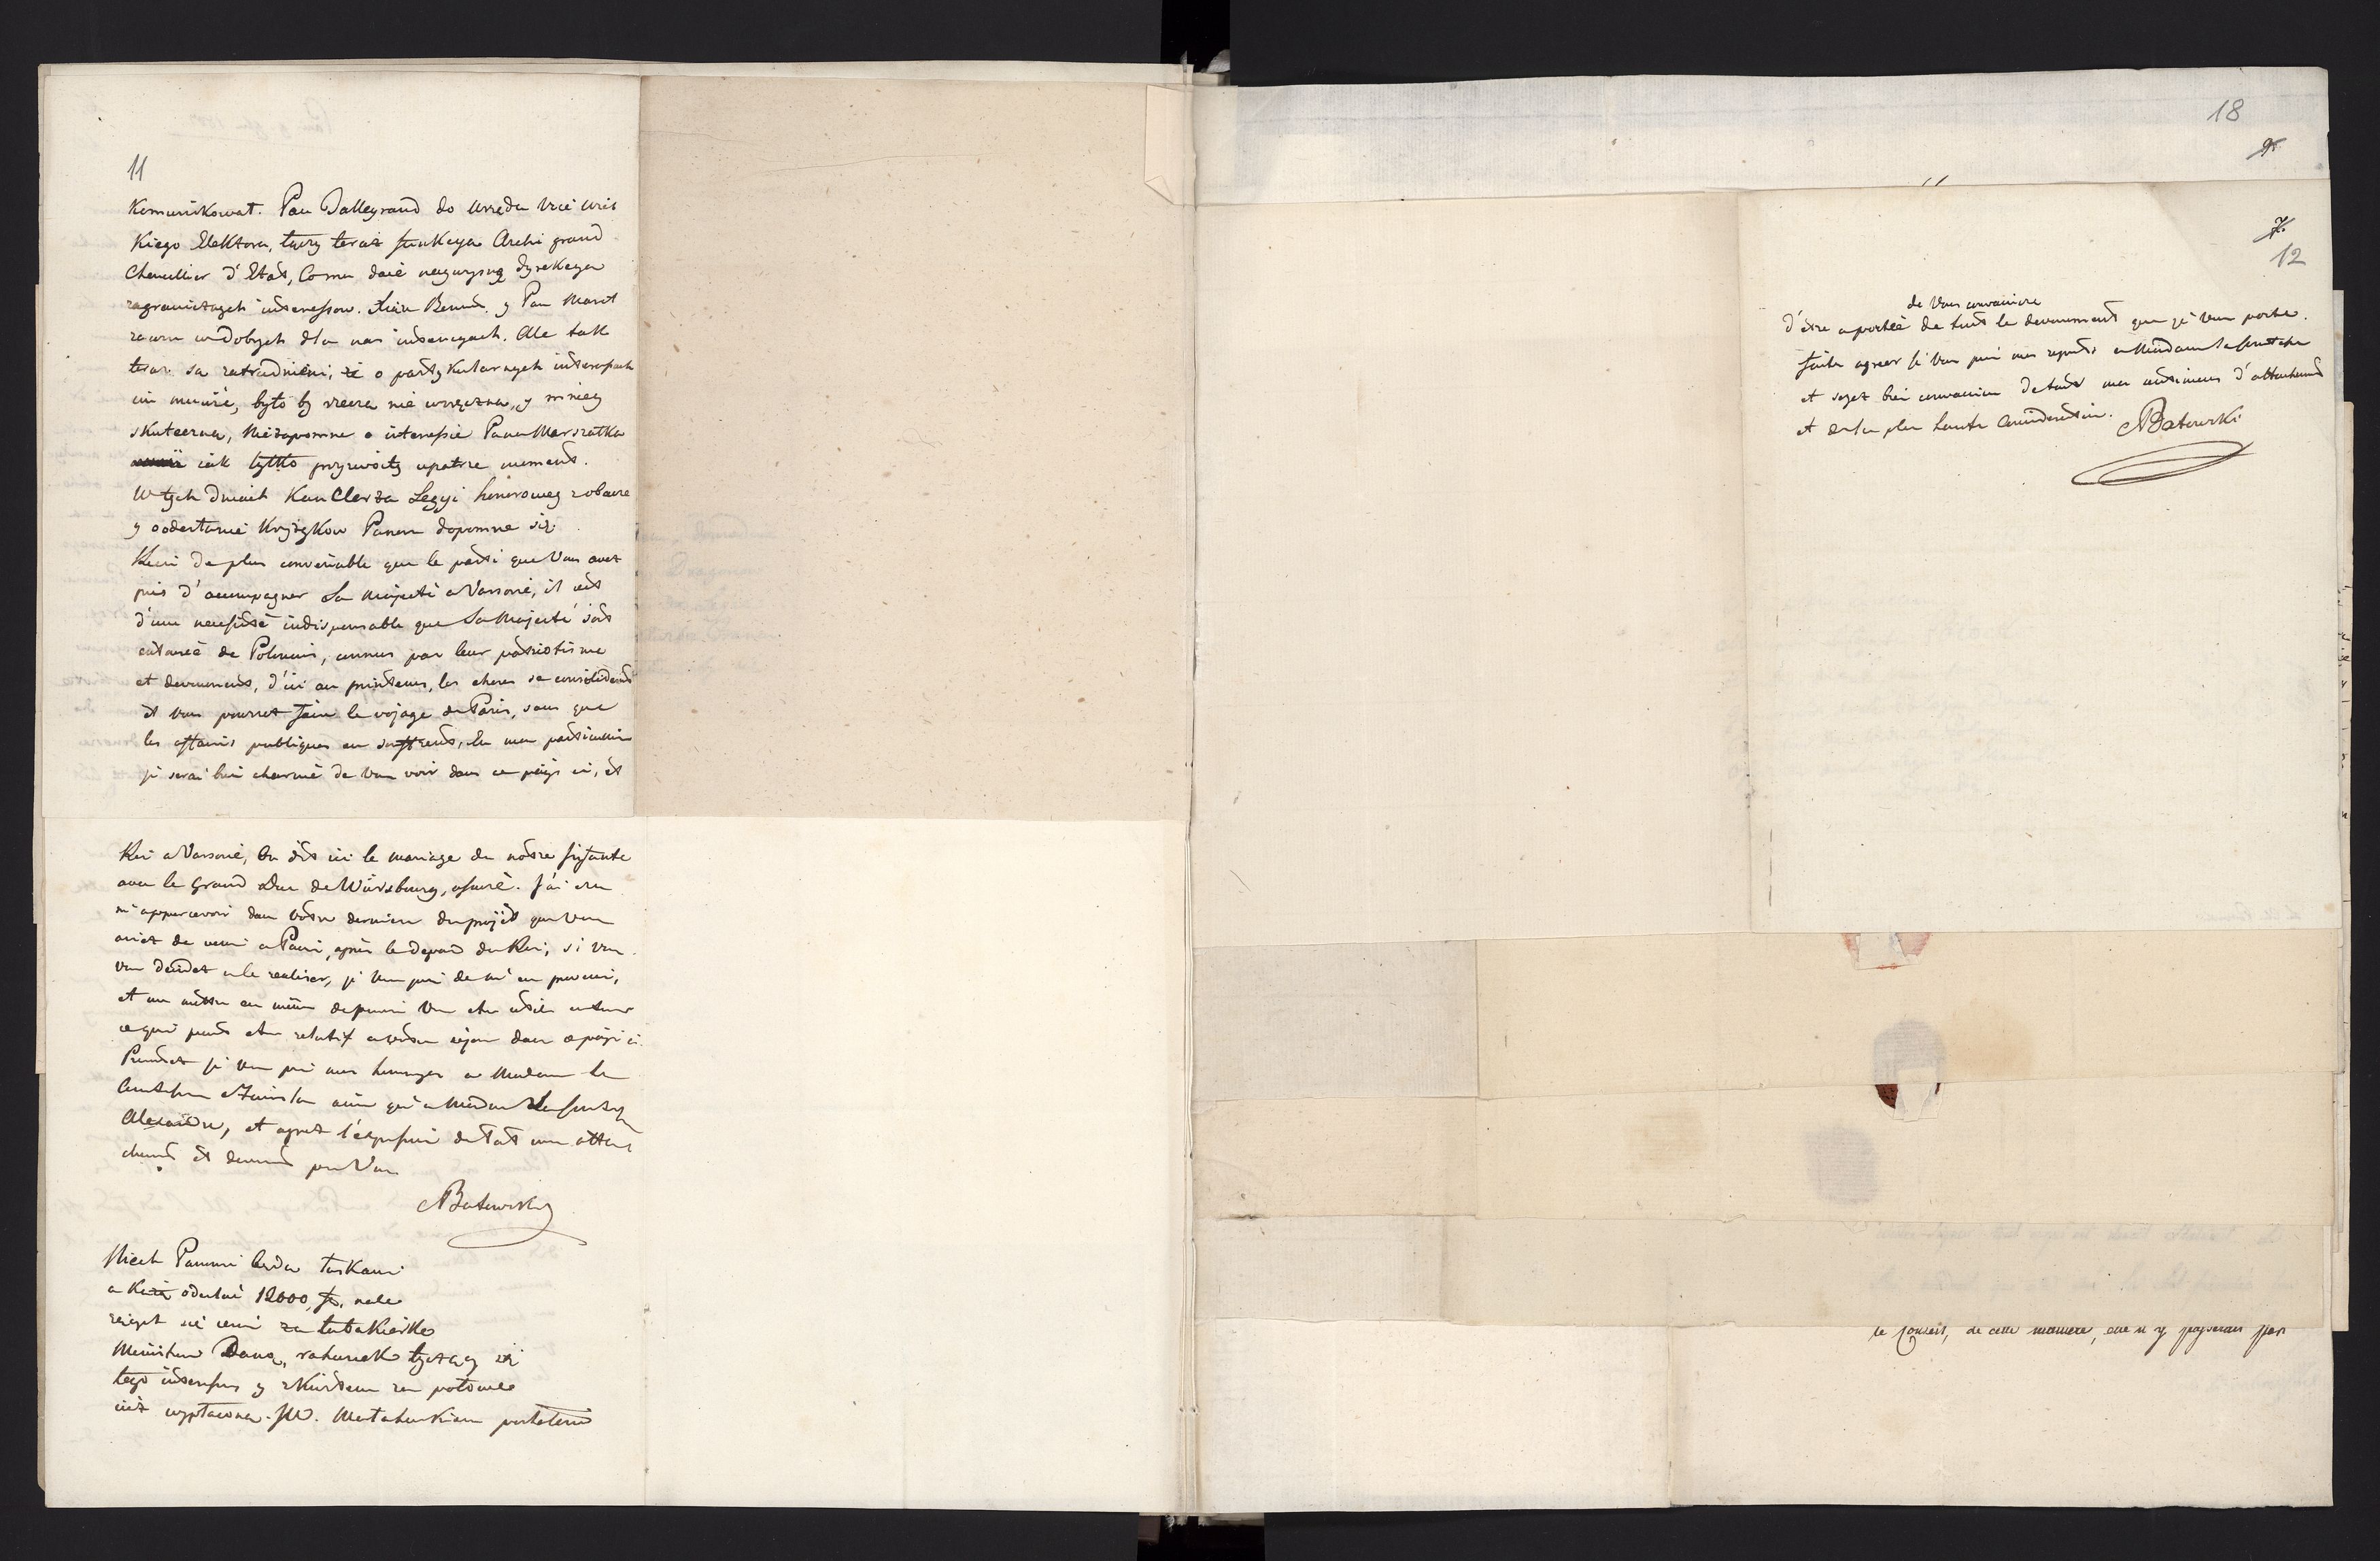 11
Komunikował. Pan Talleyrand do Urzędu Vice
Kiego Elektora, łączy teraz funkcya Archi grand
Chancellier d'Etat, Co mu daie naywyższą dyrekcya
zagranicznych interessow. Benev. y Pan Maret
w dobrych dla nas intencyach. Ale tak
teraz sa zatrudnieni, że o partykularnych interessach
im mówić, było by rzecza nie wdzięczna, y mniey
skuteczna, Nie zapomne o interesie Pana Marszałka
iak tylko przyzwoity upatrze moment.
W tych dniach Kanclerza Legyi honorowey zobacze
y o odesłanie Krzyżykow Panom dopomne się.
Rien de plus convenable que le parti que Vous avez
pris d'accompagner Sa Majesté a Varsovie, il est
d'une necessité indispensable que Sa Majesté soit
entouré de Polonais, connus par leur patriotisme
et devouement, d'ici au printems, les choses se consolideront
et vous pourrez faire le voyage de Paris, sans que
les affaires publiques en souffrent, En mon particulier
je serai bien charmé de vous voir dans ce pays ci, et
Roi a Varsovie, On dit ici le mariage de notre Infante
avec le Grand Duc de Würzburg, assuré. J'ai cru
m'appercevoir dans Votre derniere du projet que Vous
aviez de venir a Paris, après le depart du Roi; si Vous
Vous decidez a le realiser, je Vous prie de m'en prevenir,
et me mettre en même de pouvoir Vous etre utile en tout
ce qui peut etre relatif a votre sejour dans ce pays ci.
Permettez je Vous prie mes hommages a Madame la
Comtesse Stanislas ainsi qu'a Madame la Comtesse
Alexandre, et agréez l'expression de tout mon attachement
et devouement pour Vous
ABatowski
Niech Pan mi będzie łaskawi
odesłać 12000,
za tabakierke
Ministra Dana, rachunek tyczący się
tego interessu y z kwitem za połowe
iuż wypłacona. JW. Małachowskiemu posłałem
18
9.
7.
12
de Vous convaincre
d'être a portée de tout le devouement que je Vous porte.
faites agréer je Vous prie mes respects a Madame la Comtesse
et soyez bien convaincu de tous mes sentimens d'attachement
et de la plus haute Consideration. ABatowski
le Conseil, de cette maniere, elle n'y payerait pas